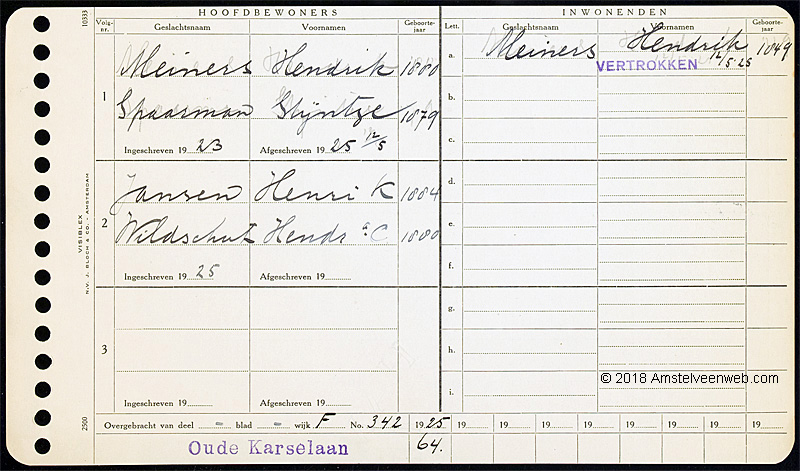 10333
HOOFDBEWONERS
INWONENDEN
Volg-nr. Geslachtsnaam Voornamen Geboorte-jaar
Lett. Geslachtsnaam Voornamen Geboorte-jaar
1
Meiners Hendrik 1880
Spaarman Stijntje 1879
Ingeschreven 1923 Afgeschreven 1925 12/5
a. Meiners Hendrik 1849
VERTROKKEN 12/5-25
b.
c.
2
Jansen Henri K 1884
Wildschut Hendr a C 1880
Ingeschreven 1925 Afgeschreven 19
d.
e.
f.
3
Ingeschreven 19 Afgeschreven 19
g.
h.
i.
VISIBLEX
N.V. J. BLOCH & CO. - AMSTERDAM
2500
© 2018 Amstelveenweb.com
Overgebracht van deel - blad - wijk F No. 342 1925 19 19 19 19 19 19 19 19
Oude Karselaan 64.